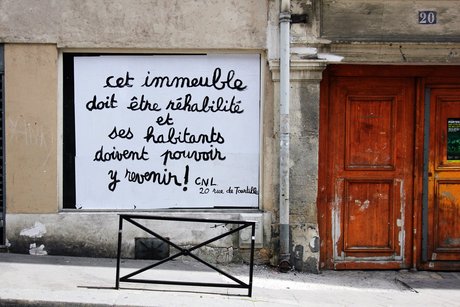 20
cet immeuble
doit être réhabilité
et
ses habitants
doivent pouvoir
y revenir! CNL
20 rue de Tourtille